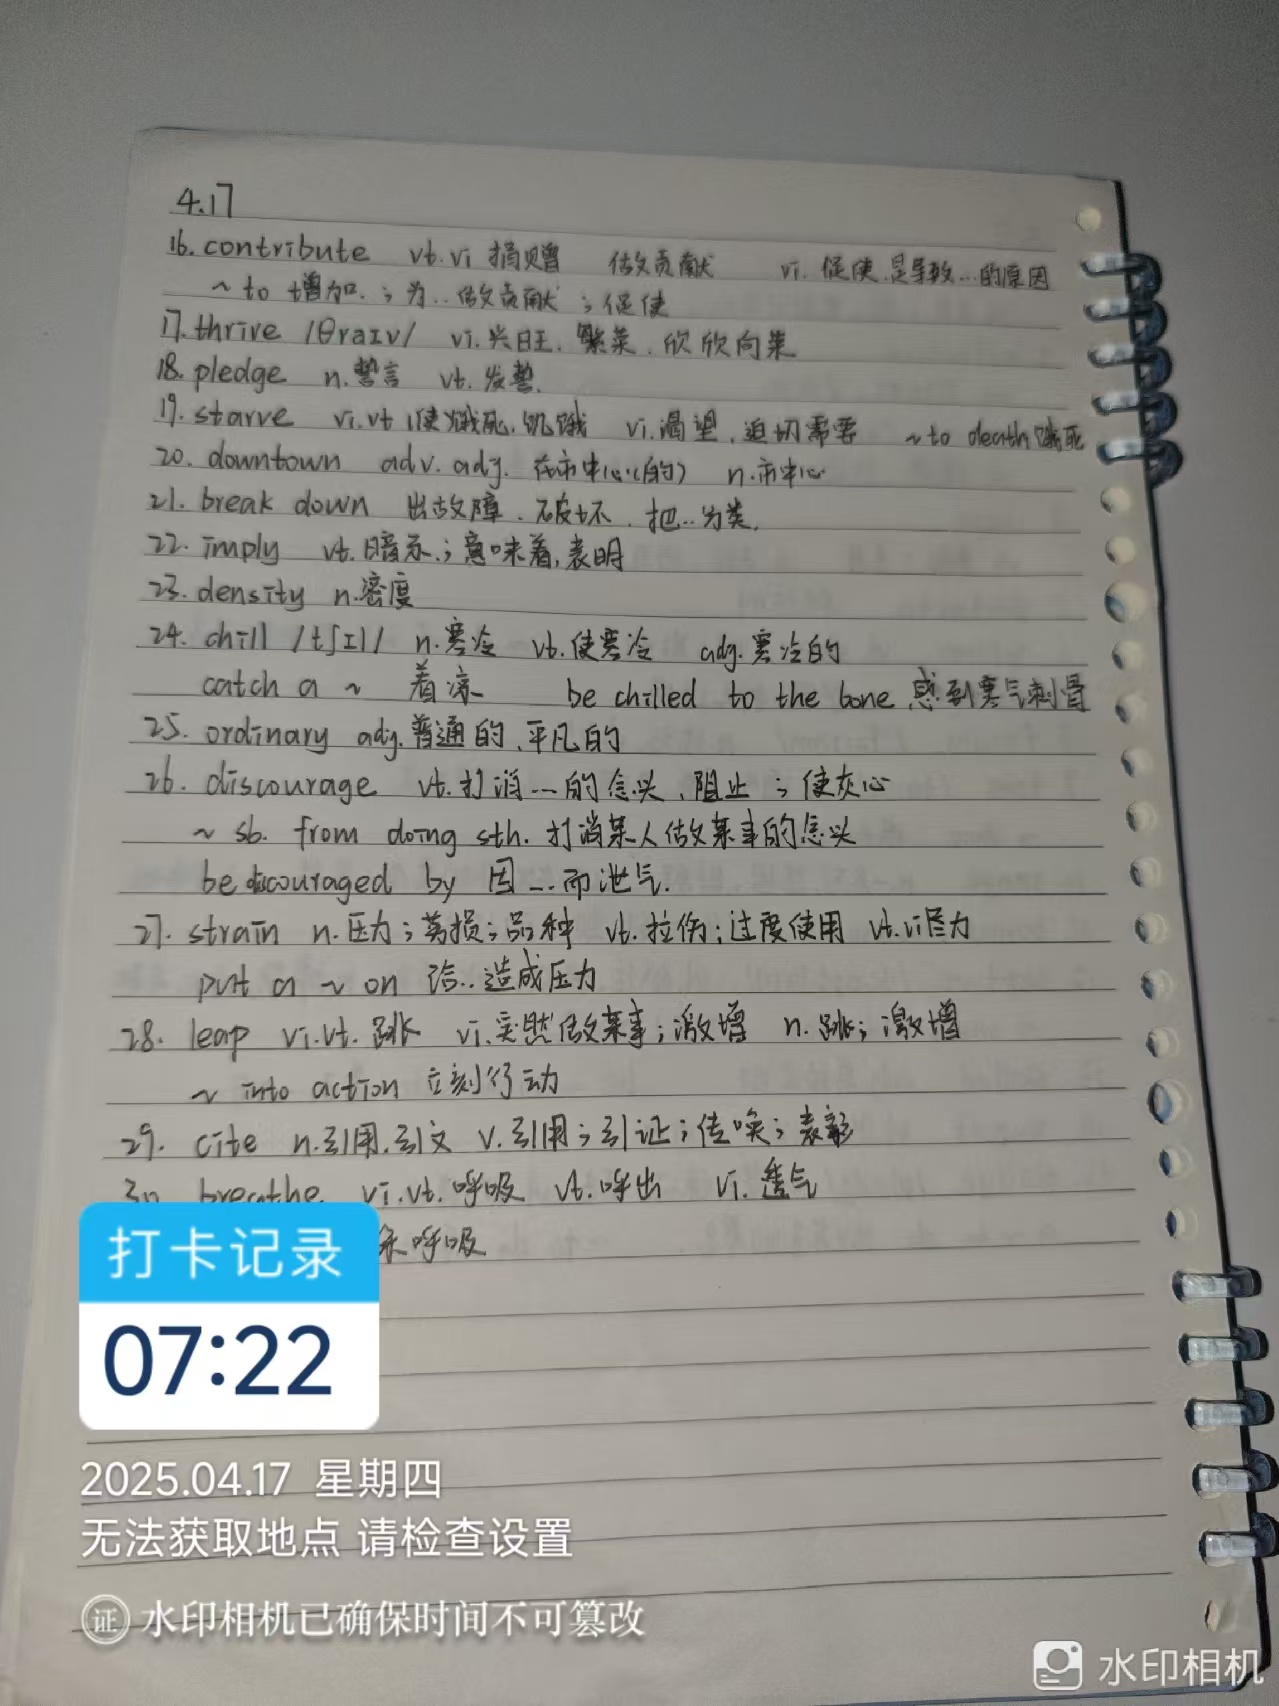 4.17
16. contribute vt. vi 捐赠 做贡献 vi. 促使,是导致…的原因
~ to 增加.；为…做贡献；促使
17. thrive /θraɪv/ vi. 兴旺. 繁荣. 欣欣向荣
18. pledge n.誓言 vt. 发誓.
19. starve vi.vt 使饿死.饥饿 vi.渴望.迫切需要 ~ to death 饿死
20. downtown adv. adj. 在市中心(的) n.市中心
21. break down 出故障.破坏.把…分类.
22. imply vt.暗示.；意味着,表明
23. density n.密度
24. chill /tʃɪl/ n.寒冷 vt.使寒冷 adj.寒冷的
catch a ~ 着凉 be chilled to the bone 感到寒气刺骨
25. ordinary adj.普通的.平凡的
26. discourage vt.打消…的念头.阻止；使灰心
~ sb. from doing sth. 打消某人做某事的念头
be discouraged by 因…而泄气.
27. strain n.压力；劳损；品种 vt.拉伤；过度使用 vt.vi尽力
put a ~ on 给…造成压力
28. leap vi.vt.跳 vi.突然做某事；激增 n.跳；激增
~ into action 立刻行动
29. cite n.引用.引文 v.引用；引证；传唤；表彰
30 breathe vi.vt.呼吸 vt.呼出 vi.透气
呼吸
打卡记录
07:22
2025.04.17 星期四
无法获取地点 请检查设置
证 水印相机已确保时间不可篡改
水印相机